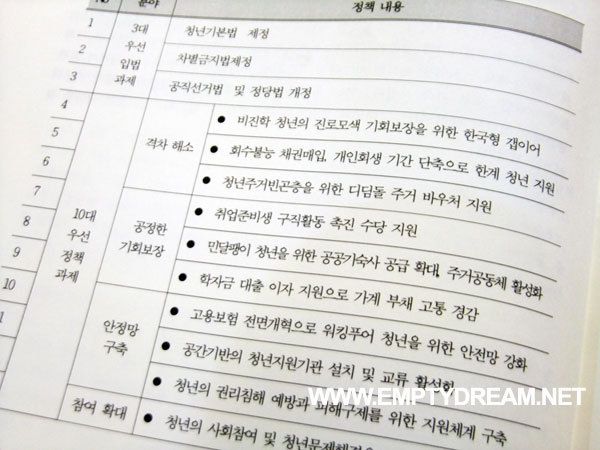 분야 정책 내용
1 청년기본법 제정
3대
우선
입법
과제
2 차별금지법제정
3 공직선거법 및 정당법 개정
4 ● 비진학 청년의 진로모색 기회보장을 위한 한국형 갭이어
격차 해소
5 ● 회수불능 채권매입, 개인회생 기간 단축으로 한계 청년 지원
6 ● 청년주거빈곤층을 위한 디딤돌 주거 바우처 지원
10대
우선
정책
과제
7 ● 취업준비생 구직활동 촉진 수당 지원
공정한
기회보장
8 ● 민달팽이 청년을 위한 공공기숙사 공급 확대, 주거공동체 활성화
9 ● 학자금 대출 이자 지원으로 가계 부채 고통 경감
10 ● 고용보험 전면개혁으로 워킹푸어 청년을 위한 안전망 강화
안정망
구축
● 공간기반의 청년지원기관 설치 및 교류 활성화
● 청년의 권리침해 예방과 피해구제를 위한 지원체계 구축
참여 확대 ● 청년의 사회참여 및
WWW.EMPTYDREAM.NET